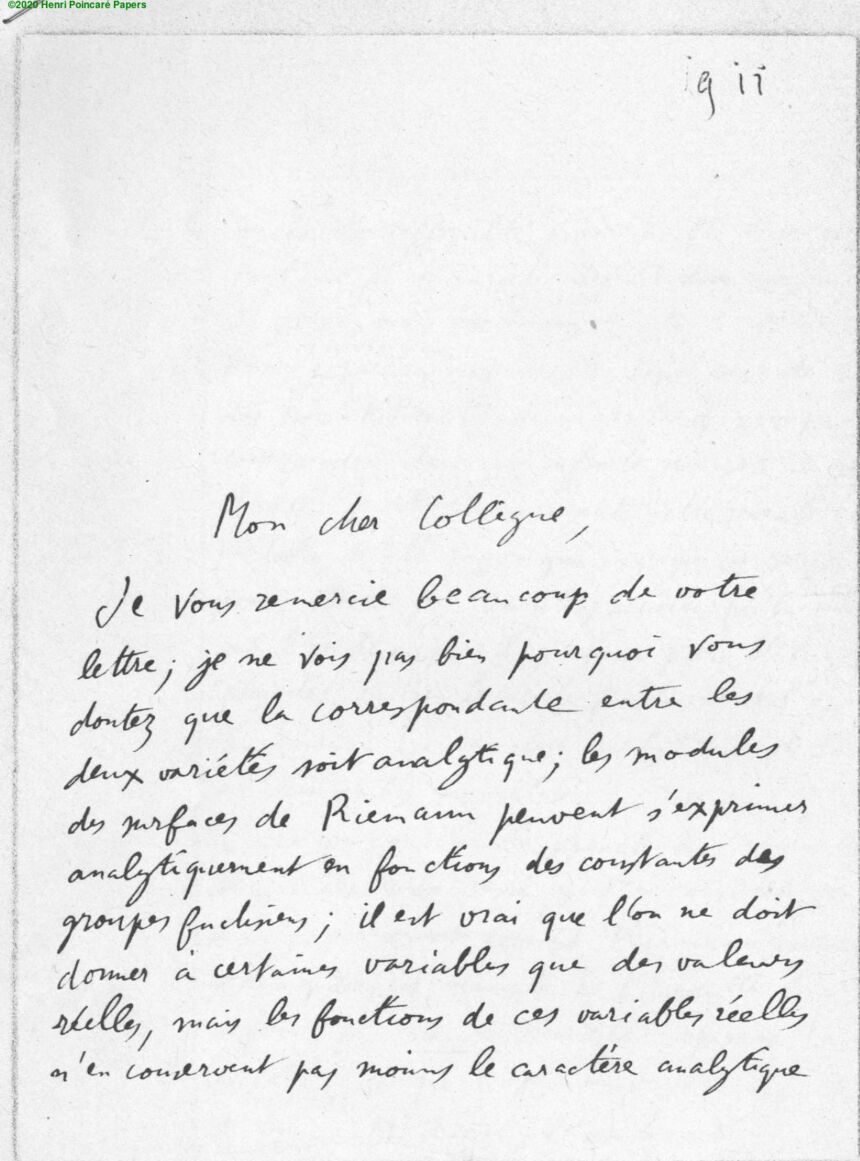 ©2020 Henri Poincaré Papers
Mon cher Collègue,
Je vous remercie beaucoup de votre
lettre; je ne vois pas bien pourquoi vous
doutez que la correspondante entre les
deux variétés soit analytique; les modules
des surfaces de Riemann peuvent s'exprimer
analytiquement en fonctions des constantes des
groupes fuchsiens; il est vrai que l'on ne doit
donner à certaines variables que des valeurs
réelles, mais les fonctions de ces variables réelles
n'en conservent pas moins le caractère analytique